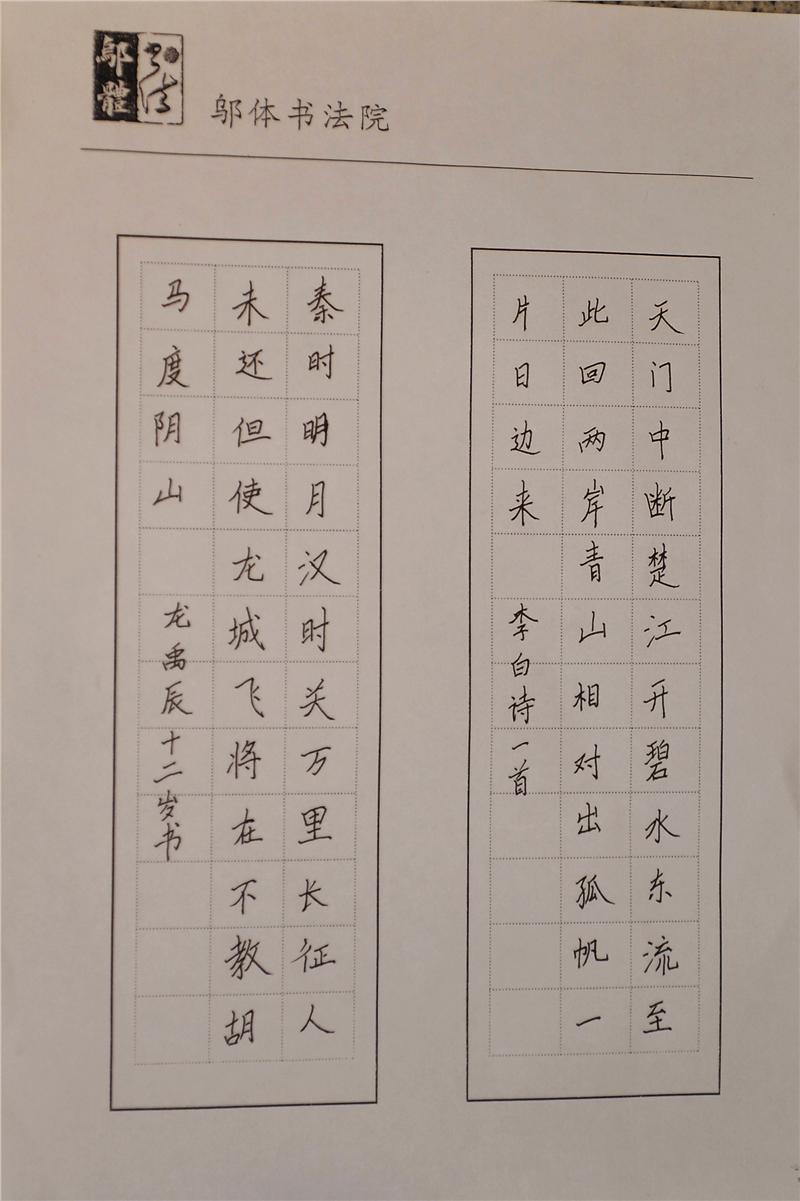 邬體
书法
邬体书法院
天门中断楚江开碧水东流至
此回两岸青山相对出孤帆一
片日边来
李白诗一首
秦时明月汉时关万里长征人
未还但使龙城飞将在不教胡
马度阴山
龙禹辰十二岁书